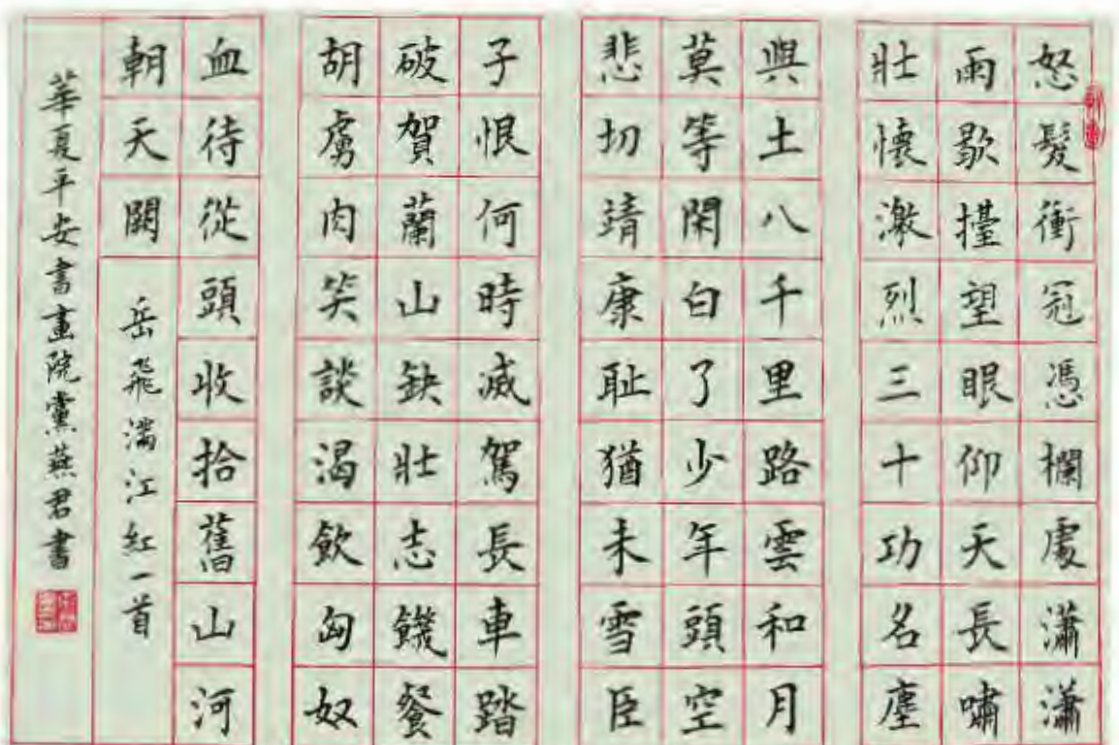 怒髮衝冠憑欄處瀟瀟
雨歇擡望眼仰天長嘯
壯懷激烈三十功名塵
與土八千里路雲和月
莫等閑白了少年頭空
悲切靖康耻猶未雪臣
子恨何時滅駕長車踏
破賀蘭山缺壯志饑餐
胡虜肉笑談渴飲匈奴
血待從頭收拾舊山河
朝天闕
岳飛滿江紅一首
華夏平安書畫院黨燕君書